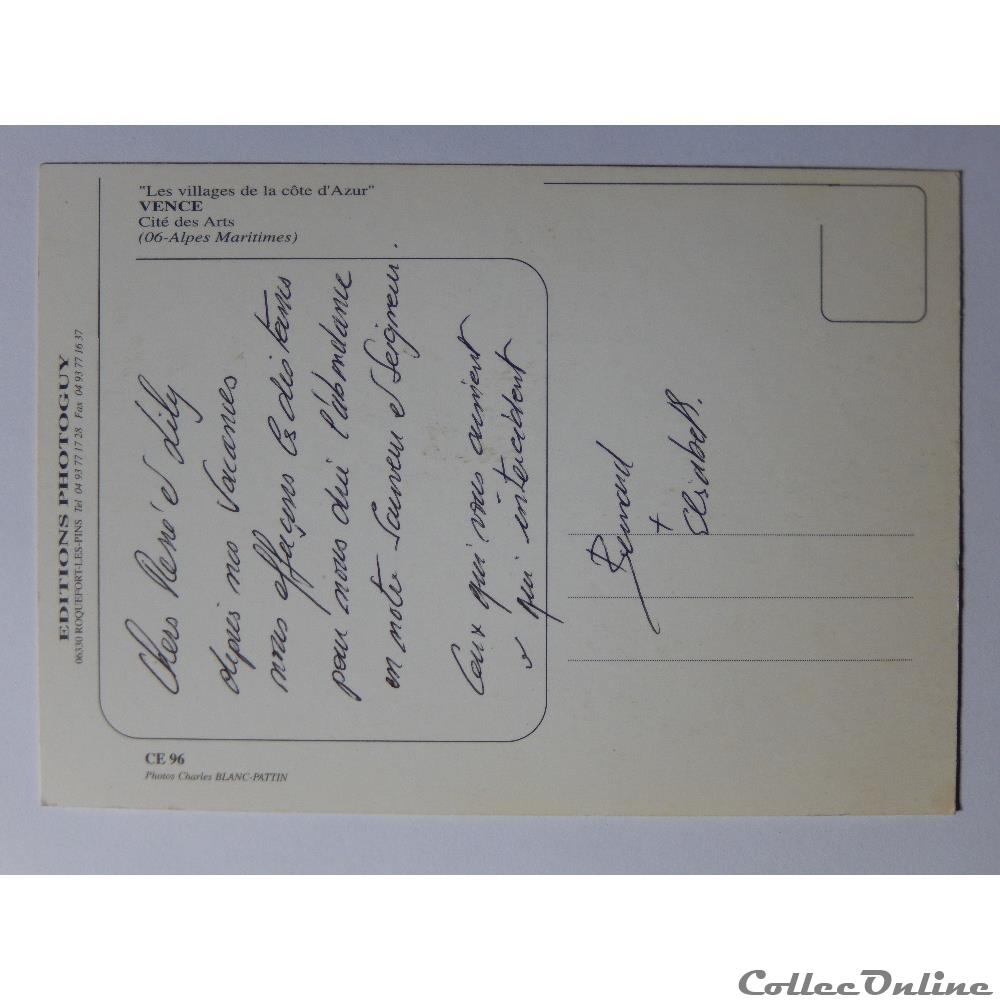 "Les villages de la côte d'Azur"
VENCE
Cité des Arts
(06-Alpes Maritimes)
EDITIONS PHOTOGUY
06330 ROQUEFORT-LES-PINS Tel 04 93 77 17 28 Fax 04 93 77 16 37
Chers René et Lily
depuis nos vacances
nous effaçons les distances
pour vous dire l'abondance
en notre Sauveur et Seigneur.
Ceux qui vous aiment
et qui intercèdent
Bernard
+
Elisabeth.
CE 96
Photos Charles BLANC-PATTIN
CollecOnline